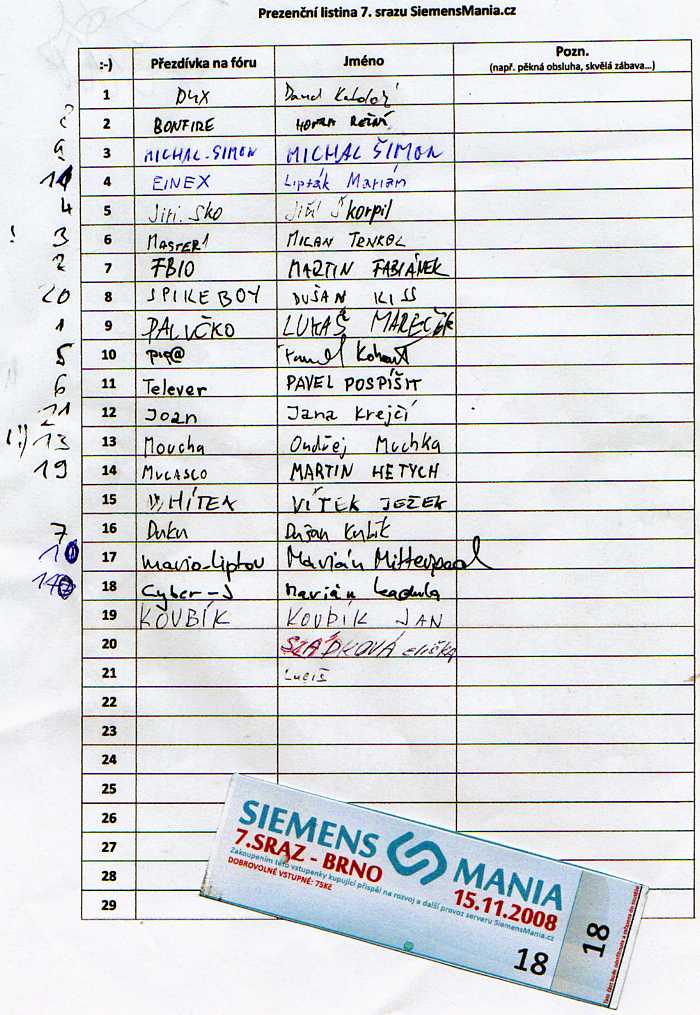 Prezenční listina 7. srazu SiemensMania.cz
:-) Přezdívka na fóru Jméno Pozn.
(např. pěkná obsluha, skvělá zábava...)
1 DUX David
2 2 BONFIRE HONZA
9 3 MICHAL-ŠIMON MICHAL ŠIMON
4 EINEX Lipták Marián
4 5 Jiri.Sko Jiří Škorpil
! 3 6 MASTER1 MILAN TENKOL
2 7 FBIO MARTIN FABIÁNEK
20 8 SPIKEBOY DUŠAN KISS
1 9 PALIČKO LUKÁŠ MAREČEK
5 10 pig@ Pavel Kohout
6 11 Telever PAVEL POSPÍŠIL
11 12 Joan Jana Krejčí
13 13 Moucha Ondřej Muchka
19 14 MUCASCO MARTIN HETYCH
15 VÍTEK JEŽEK
7 16 Duku Dušan
10 17 mario-liptov Marián
18 Cyber-J Marián
19 KOUBÍK KOUBÍK JAN
20 SZÁDKOVÁ eliška
21
22
23
24
25
26
27
28
29
SIEMENS MANIA
7.SRAZ - BRNO 15.11.2008
Zakoupením této vstupenky kupující přispěl na rozvoj a další provoz serveru SiemensMania.cz
DOBROVOLNÉ VSTUPNÉ: 75KČ
18
18